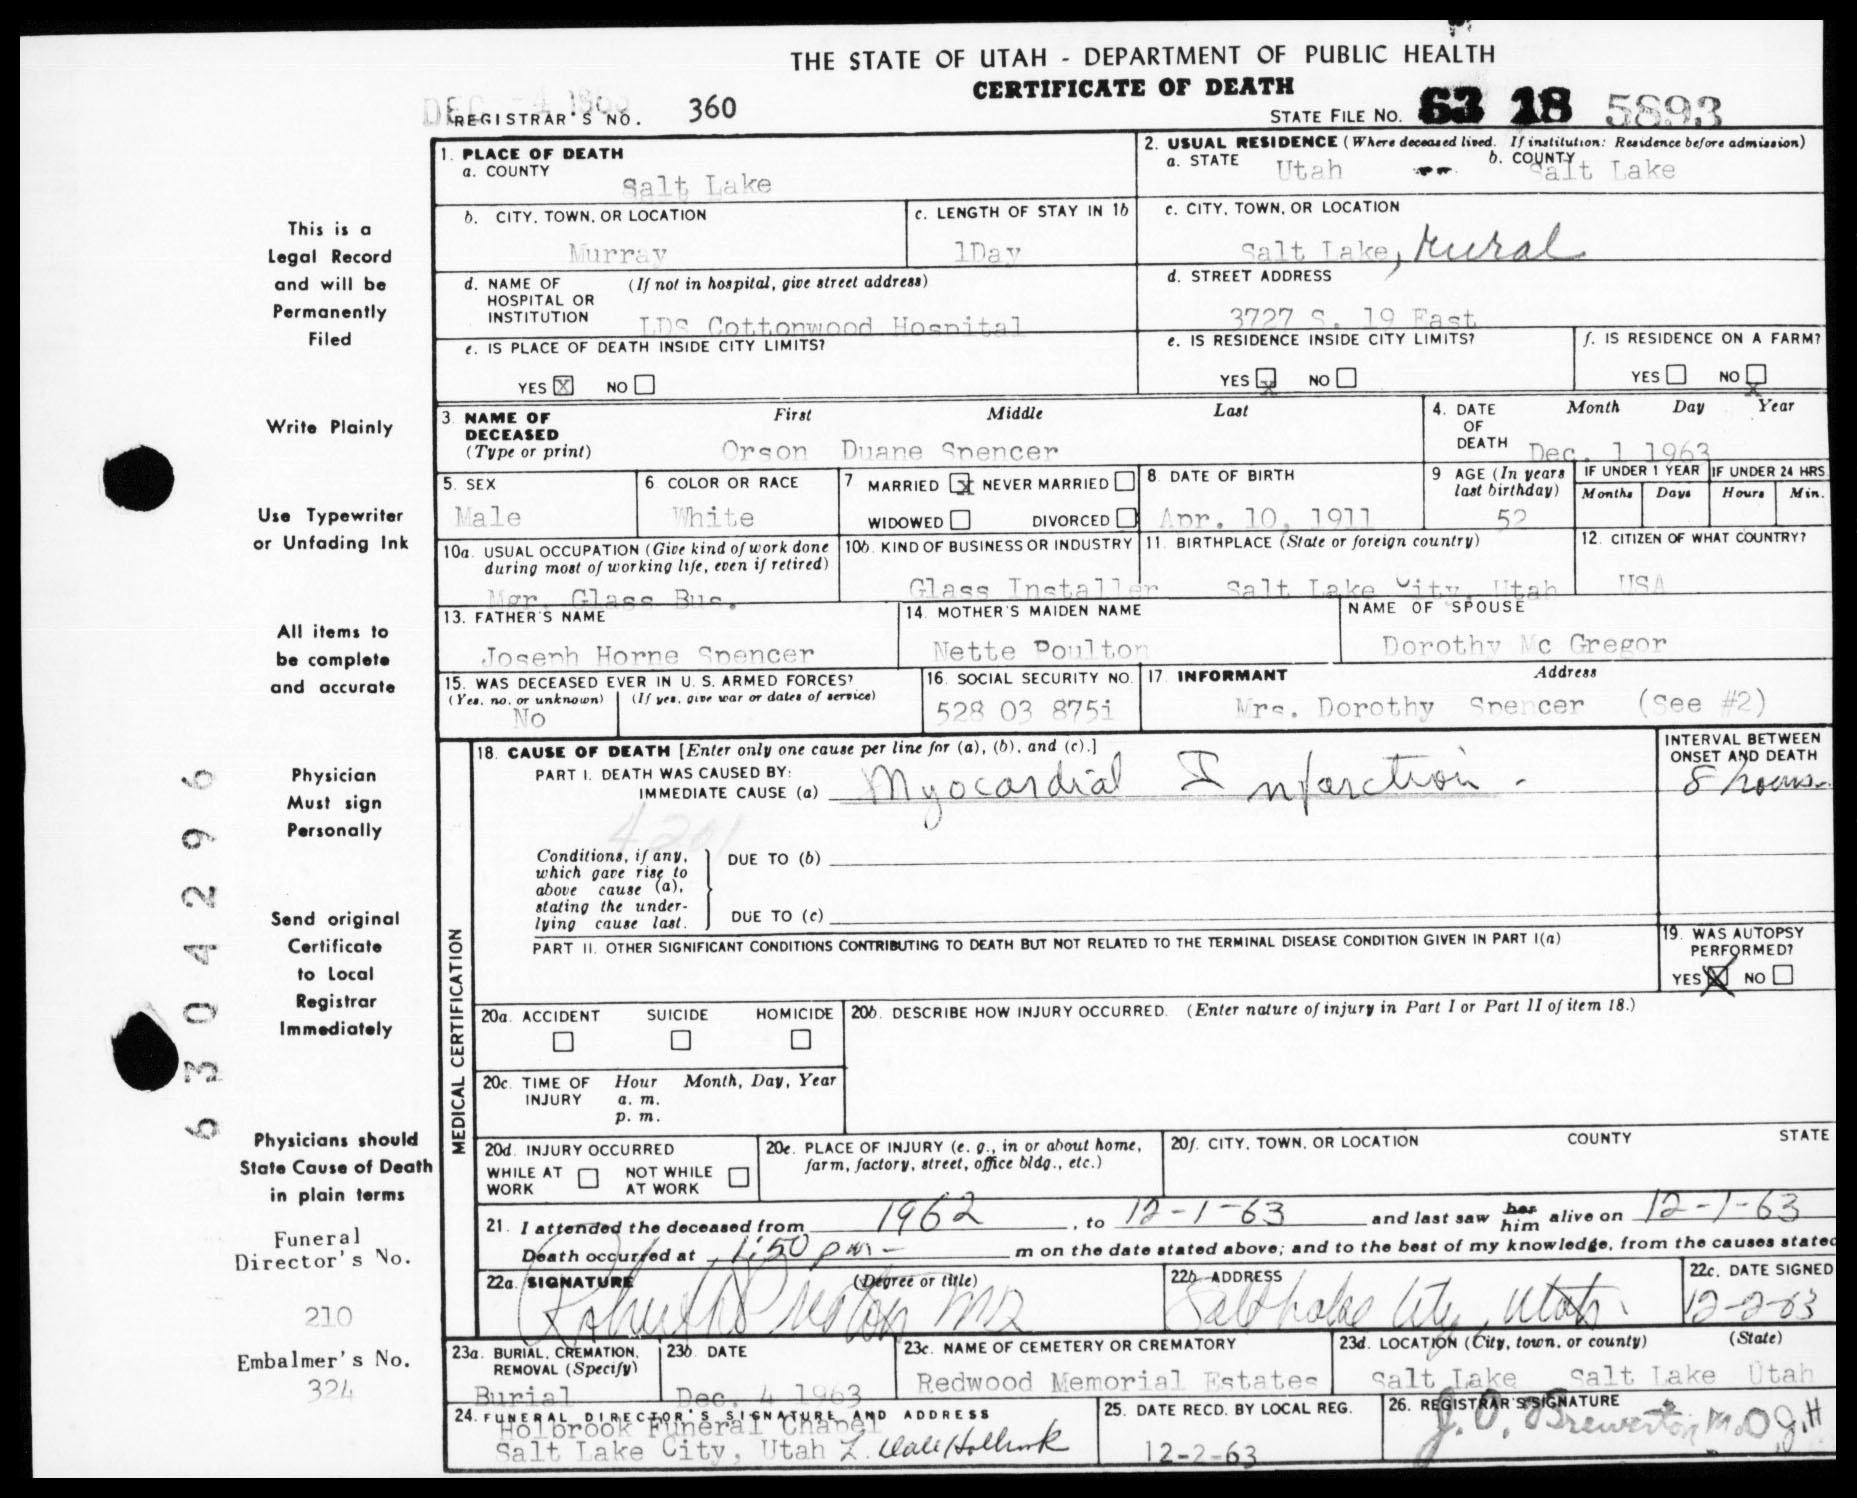 THE STATE OF UTAH - DEPARTMENT OF PUBLIC HEALTH
CERTIFICATE OF DEATH
DEC -4 1963
REGISTRAR'S NO. 360
STATE FILE NO. 63 18 5893
1. PLACE OF DEATH
a. COUNTY
Salt Lake
2. USUAL RESIDENCE (Where deceased lived. If institution: Residence before admission)
a. STATE Utah b. COUNTY Salt Lake
b. CITY, TOWN, OR LOCATION
Murray
c. LENGTH OF STAY IN 1b
1Day
c. CITY, TOWN, OR LOCATION
Salt Lake, rural
d. NAME OF HOSPITAL OR INSTITUTION (If not in hospital, give street address)
LDS Cottonwood Hospital
d. STREET ADDRESS
3727 S. 19 East
e. IS PLACE OF DEATH INSIDE CITY LIMITS?
YES X NO
e. IS RESIDENCE INSIDE CITY LIMITS?
YES x NO
f. IS RESIDENCE ON A FARM?
YES NO x
3. NAME OF DECEASED (Type or print)
First Middle Last
Orson Duane Spencer
4. DATE OF DEATH
Month Day Year
Dec. 1 1963
5. SEX
Male
6 COLOR OR RACE
White
7 MARRIED x NEVER MARRIED
WIDOWED DIVORCED
8. DATE OF BIRTH
Apr. 10, 1911
9 AGE (In years last birthday)
52
IF UNDER 1 YEAR
Months Days
IF UNDER 24 HRS
Hours Min.
10a. USUAL OCCUPATION (Give kind of work done during most of working life, even if retired)
Mgr. Glass Bus.
10b. KIND OF BUSINESS OR INDUSTRY
Glass Installer
11. BIRTHPLACE (State or foreign country)
Salt Lake City, Utah
12. CITIZEN OF WHAT COUNTRY?
USA
13. FATHER'S NAME
Joseph Horne Spencer
14. MOTHER'S MAIDEN NAME
Nette Poulton
NAME OF SPOUSE
Dorothy Mc Gregor
15. WAS DECEASED EVER IN U. S. ARMED FORCES?
(Yes, no, or unknown) (If yes, give war or dates of service)
No
16. SOCIAL SECURITY NO.
528 03 8751
17. INFORMANT Address
Mrs. Dorothy Spencer (see #2)
MEDICAL CERTIFICATION
18. CAUSE OF DEATH [Enter only one cause per line for (a), (b), and (c).]
PART I. DEATH WAS CAUSED BY:
IMMEDIATE CAUSE (a) Myocardial Infarction -
INTERVAL BETWEEN ONSET AND DEATH
8 hours.
4201
Conditions, if any, which gave rise to above cause (a), stating the underlying cause last.
DUE TO (b)
DUE TO (c)
PART II. OTHER SIGNIFICANT CONDITIONS CONTRIBUTING TO DEATH BUT NOT RELATED TO THE TERMINAL DISEASE CONDITION GIVEN IN PART I(a)
19. WAS AUTOPSY PERFORMED?
YES X NO
20a. ACCIDENT SUICIDE HOMICIDE
20b. DESCRIBE HOW INJURY OCCURRED. (Enter nature of injury in Part I or Part II of item 18.)
20c. TIME OF INJURY Hour Month, Day, Year
a. m.
p. m.
20d. INJURY OCCURRED
WHILE AT WORK NOT WHILE AT WORK
20e. PLACE OF INJURY (e. g., in or about home, farm, factory, street, office bldg., etc.)
20f. CITY, TOWN, OR LOCATION COUNTY STATE
21. I attended the deceased from 1962, to 12-1-63 and last saw her him alive on 12-1-63
Death occurred at 1:50 pm - m on the date stated above; and to the best of my knowledge, from the causes stated
22a. SIGNATURE (Degree or title)
Preston MD
22b. ADDRESS
Salt Lake City, Utah.
22c. DATE SIGNED
12-2-63
23a. BURIAL, CREMATION, REMOVAL (Specify)
Burial
23b. DATE
Dec. 4 1963
23c. NAME OF CEMETERY OR CREMATORY
Redwood Memorial Estates
23d. LOCATION (City, town, or county) (State)
Salt Lake Salt Lake Utah
24. FUNERAL DIRECTOR'S SIGNATURE AND ADDRESS
Holbrook Funeral Chapel
Salt Lake City, Utah L. Dale Holbrook
25. DATE RECD. BY LOCAL REG.
12-2-63
26. REGISTRAR'S SIGNATURE
J. O. Brewerton, M.D. J.H
This is a
Legal Record
and will be
Permanently
Filed
Write Plainly
Use Typewriter
or Unfading Ink
All items to
be complete
and accurate
Physician
Must sign
Personally
Send original
Certificate
to Local
Registrar
Immediately
Physicians should
State Cause of Death
in plain terms
Funeral
Director's No.
210
Embalmer's No.
324
6304296